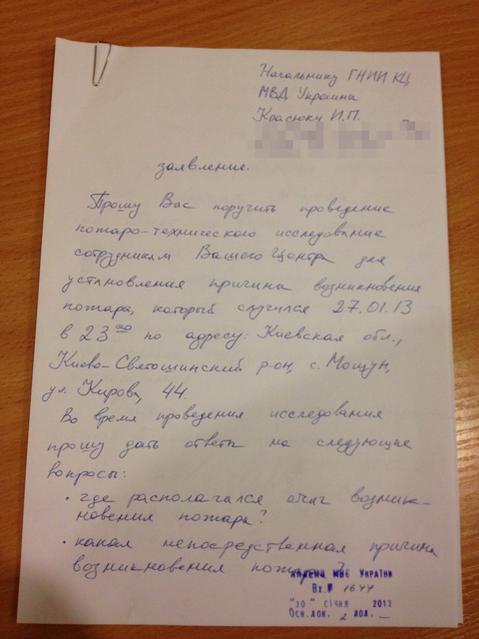 Начальнику ГНИИ КЦ
МВД Украины
Красюку И.П.
заявление.
Прошу Вас поручить проведение
пожаро-технического исследование
сотрудникам Вашего Центра для
установления причина возникновения
пожара, который случился 27.01.13
в 23 00 по адресу: Киевская обл.,
Киево-Святошинский р-он, с. Мощун,
ул. Кирова, 44.
Во время проведения исследования
прошу дать ответы на следующие
вопросы:
• где располагался очаг возник-
новения пожара?
• какая непосредственная причина
возникновения пожара?
МВС УКРАЇНИ
Вх.№ 1644
"30" січня 2013
Осн.док. 2 дод. -